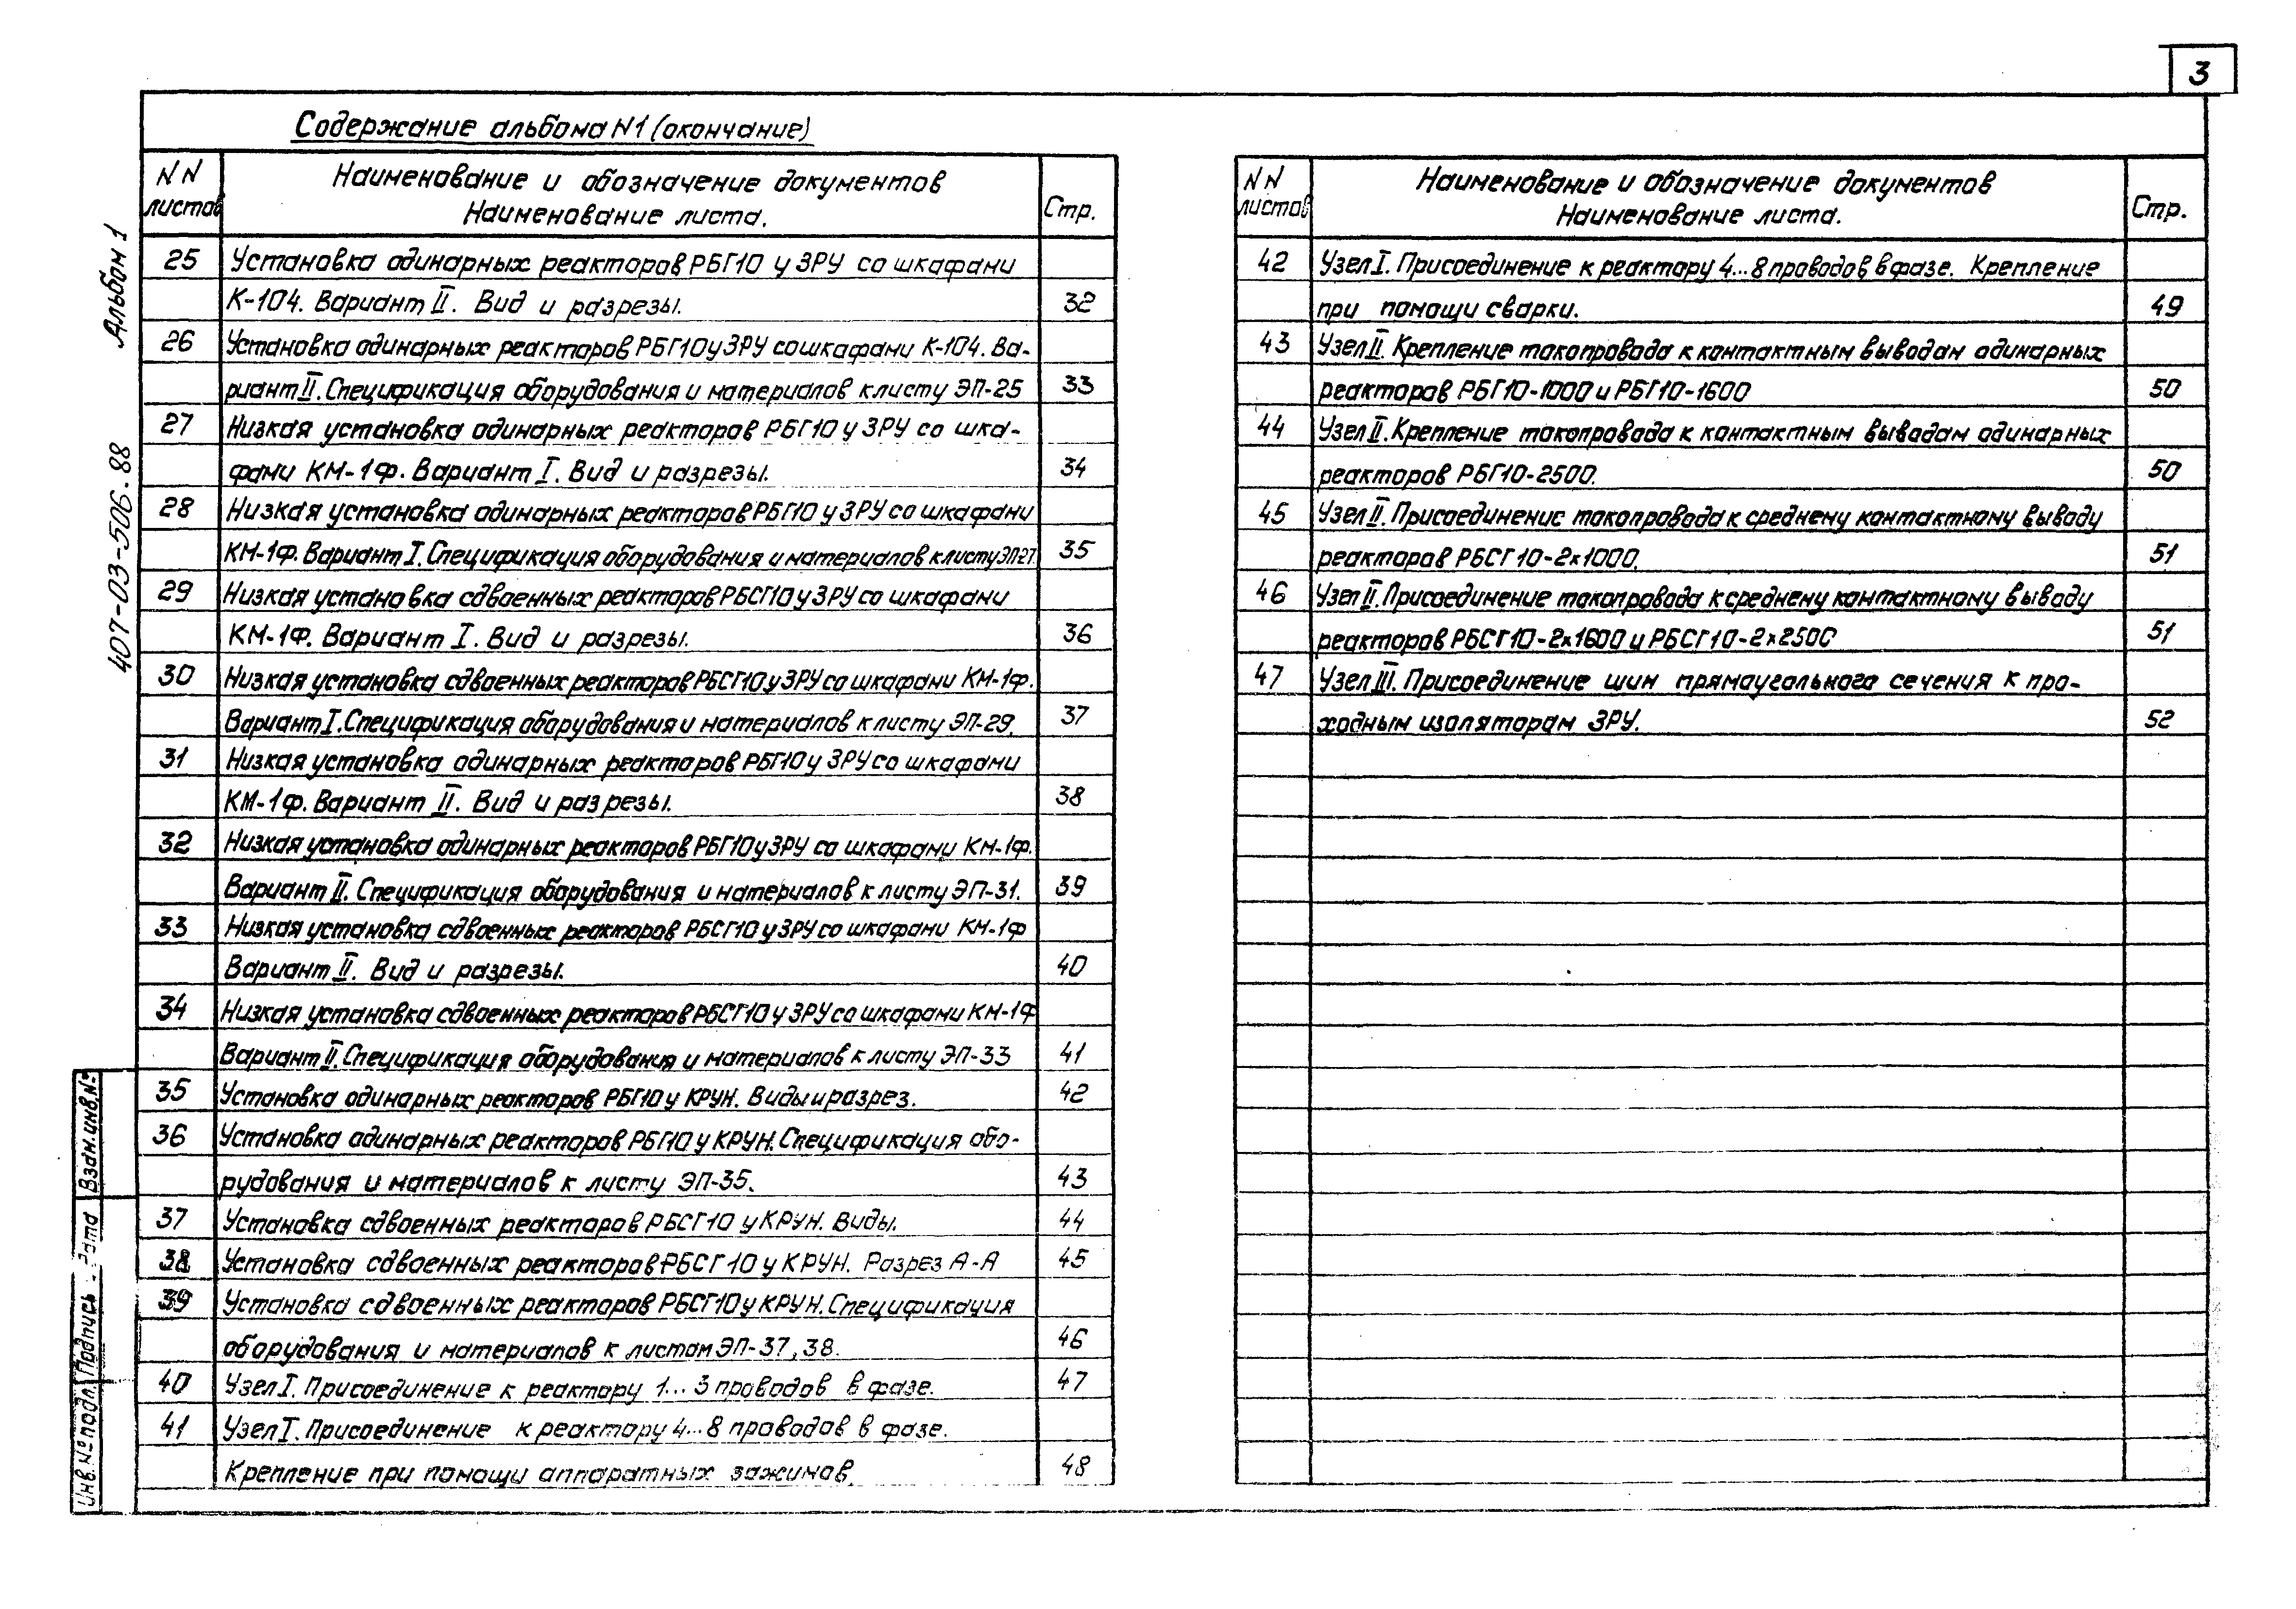 3
Содержание альбома N1 (окончание)
NN листов
Наименование и обозначение документов
Наименование листа.
Стр.
25 Установка одинарных реакторов РБГ10 у ЗРУ со шкафами
К-104. Вариант II. Вид и разрезы. 32
26 Установка одинарных реакторов РБГ10 у ЗРУ со шкафами К-104. Ва-
риант II. Спецификация оборудования и материалов к листу ЭП-25 33
27 Низкая установка одинарных реакторов РБГ10 у ЗРУ со шка-
фами КМ-1Ф. Вариант I. Вид и разрезы. 34
28 Низкая установка одинарных реакторов РБГ10 у ЗРУ со шкафами
КМ-1Ф. Вариант I. Спецификация оборудования и материалов к листу ЭП27. 35
29 Низкая установка сдвоенных реакторов РБСГ10 у ЗРУ со шкафами
КМ-1Ф. Вариант I. Вид и разрезы. 36
30 Низкая установка сдвоенных реакторов РБСГ10 у ЗРУ со шкафами КМ-1Ф.
Вариант I. Спецификация оборудования и материалов к листу ЭП-29. 37
31 Низкая установка одинарных реакторов РБГ10 у ЗРУ со шкафами
КМ-1Ф. Вариант II. Вид и разрезы. 38
32 Низкая установка одинарных реакторов РБГ10 у ЗРУ со шкафами КМ-1Ф.
Вариант II. Спецификация оборудования и материалов к листу ЭП-31. 39
33 Низкая установка сдвоенных реакторов РБСГ10 у ЗРУ со шкафами КМ-1Ф
Вариант II. Вид и разрезы. 40
34 Низкая установка сдвоенных реакторов РБСГ10 у ЗРУ со шкафами КМ-1Ф
Вариант II. Спецификация оборудования и материалов к листу ЭП-33 41
35 Установка одинарных реакторов РБГ10 у КРУН. Виды и разрез. 42
36 Установка одинарных реакторов РБГ10 у КРУН. Спецификация обо-
рудования и материалов к листу ЭП-35. 43
37 Установка сдвоенных реакторов РБСГ10 у КРУН. Виды. 44
38 Установка сдвоенных реакторов РБСГ10 у КРУН. Разрез А-А 45
39 Установка сдвоенных реакторов РБСГ10 у КРУН. Спецификация
оборудования и материалов к листам ЭП-37,38. 46
40 Узел I. Присоединение к реактору 1...3 проводов в фазе. 47
41 Узел I. Присоединение к реактору 4...8 проводов в фазе.
Крепление при помощи аппаратных зажимов. 48
NN листов
Наименование и обозначение документов
Наименование листа.
Стр.
42 Узел I. Присоединение к реактору 4...8 проводов в фазе. Крепление
при помощи сварки. 49
43 Узел II. Крепление токопровода к контактным выводам одинарных
реакторов РБГ10-1000 и РБГ10-1600 50
44 Узел II. Крепление токопровода к контактным выводам одинарных
реакторов РБГ10-2500. 50
45 Узел II. Присоединение токопровода к среднему контактному выводу
реакторов РБСГ10-2х1000. 51
46 Узел II. Присоединение токопровода к среднему контактному выводу
реакторов РБСГ10-2х1600 и РБСГ10-2х2500 51
47 Узел III. Присоединение шин прямоугольного сечения к про-
ходным изоляторам ЗРУ. 52
Альбом 1
407-03-506.88
Взам.инв.№
Подпись Дата
Инв.№ подл.